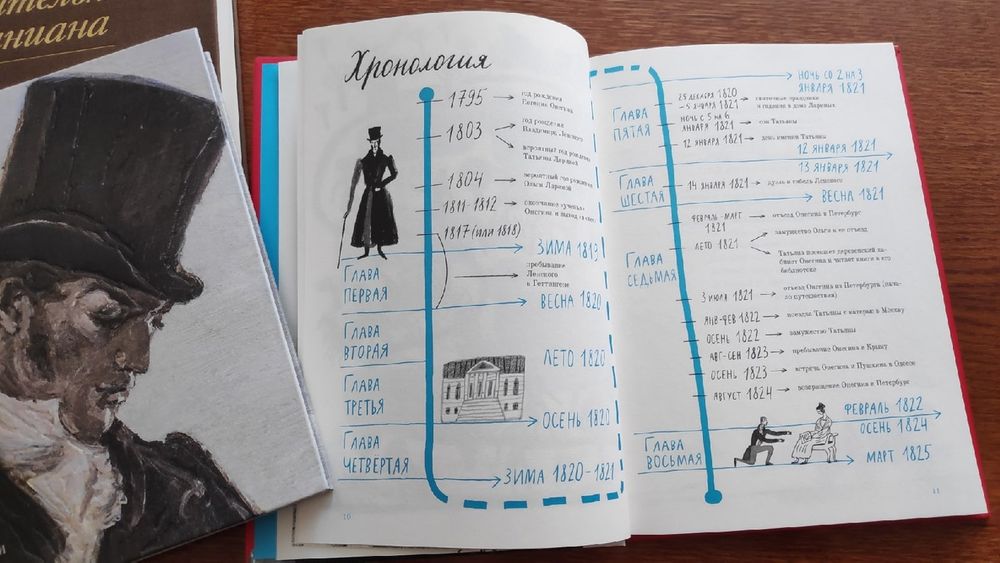 ниана
Хронология
1795
год рождения
Евгения Онегина
1803
год рождения
Владимира Ленского
вероятный год рождения
Татьяны Лариной
1804
вероятный год рождения
Ольги Лариной
1811–1812
окончание «ученья»
Онегина и выход в свет
1817 (или 1818)
ЗИМА 1819
ГЛАВА
ПЕРВАЯ
пребывание
Ленского
в Геттингене
ВЕСНА 1820
ГЛАВА
ВТОРАЯ
ЛЕТО 1820
ГЛАВА
ТРЕТЬЯ
ОСЕНЬ 1820
ГЛАВА
ЧЕТВЕРТАЯ
ЗИМА 1820–1821
10
НОЧЬ СО 2 НА 3
ЯНВАРЯ 1821
ГЛАВА
ПЯТАЯ
25 ДЕКАБРЯ 1820
–5 ЯНВАРЯ 1821
святочные праздники
и гадания в доме Лариных
НОЧЬ С 5 НА 6
ЯНВАРЯ 1821
сон Татьяны
12 ЯНВАРЯ 1821
день именин Татьяны
12 ЯНВАРЯ 1821
13 ЯНВАРЯ 1821
ГЛАВА
ШЕСТАЯ
14 ЯНВАРЯ 1821
дуэль и гибель Ленского
ВЕСНА 1821
ФЕВРАЛЬ-МАРТ
1821
отъезд Онегина в Петербург
ЛЕТО 1821
замужество Ольги и ее отъезд
Татьяна посещает деревенский ка-
бинет Онегина и читает книги в его
библиотеке
ГЛАВА
СЕДЬМАЯ
3 ИЮЛЯ 1821
отъезд Онегина из Петербурга (нача-
ло путешествия)
ЯНВ-ФЕВ 1822
поездка Татьяны с матерью в Москву
ОСЕНЬ 1822
замужество Татьяны
АВГ-СЕН 1823
пребывание Онегина в Крыму
ОСЕНЬ 1823
встреча Онегина и Пушкина в Одессе
АВГУСТ 1824
возвращение Онегина в Петербург
ФЕВРАЛЬ 1822
ОСЕНЬ 1824
ГЛАВА
ВОСЬМАЯ
МАРТ 1825
11